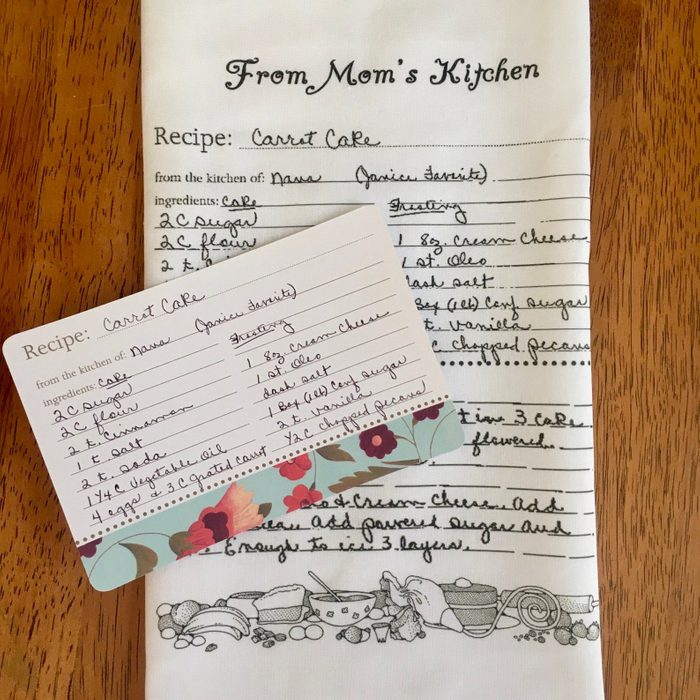 From Mom's Kitchen
Recipe: Carrot Cake
from the kitchen of: Nana (Janice Favorite)
ingredients: Cake Frosting
2 C sugar
2 C flour 1 8z. cream cheese
2 t. 1 st. Oleo
dash salt
Box (1lb) Conf sugar
t. vanilla
C chopped pecans
in 3 cake
flowered.
& Cream Cheese. Add
Add powered sugar and
Enough to ice 3 layers.
Recipe: Carrot Cake
from the kitchen of: Nana (Janice Favorite)
ingredients: Cake Frosting
2 C sugar 1 8z. cream cheese
2 C flour 1 st. Oleo
2 t. Cinnamon dash salt
1 t. salt 1 Box (1lb) Conf sugar
2 t. soda 2 t. vanilla
1 1/4 C Vegetable Oil 1/2 C chopped pecans
4 eggs & 3 C grated carrot